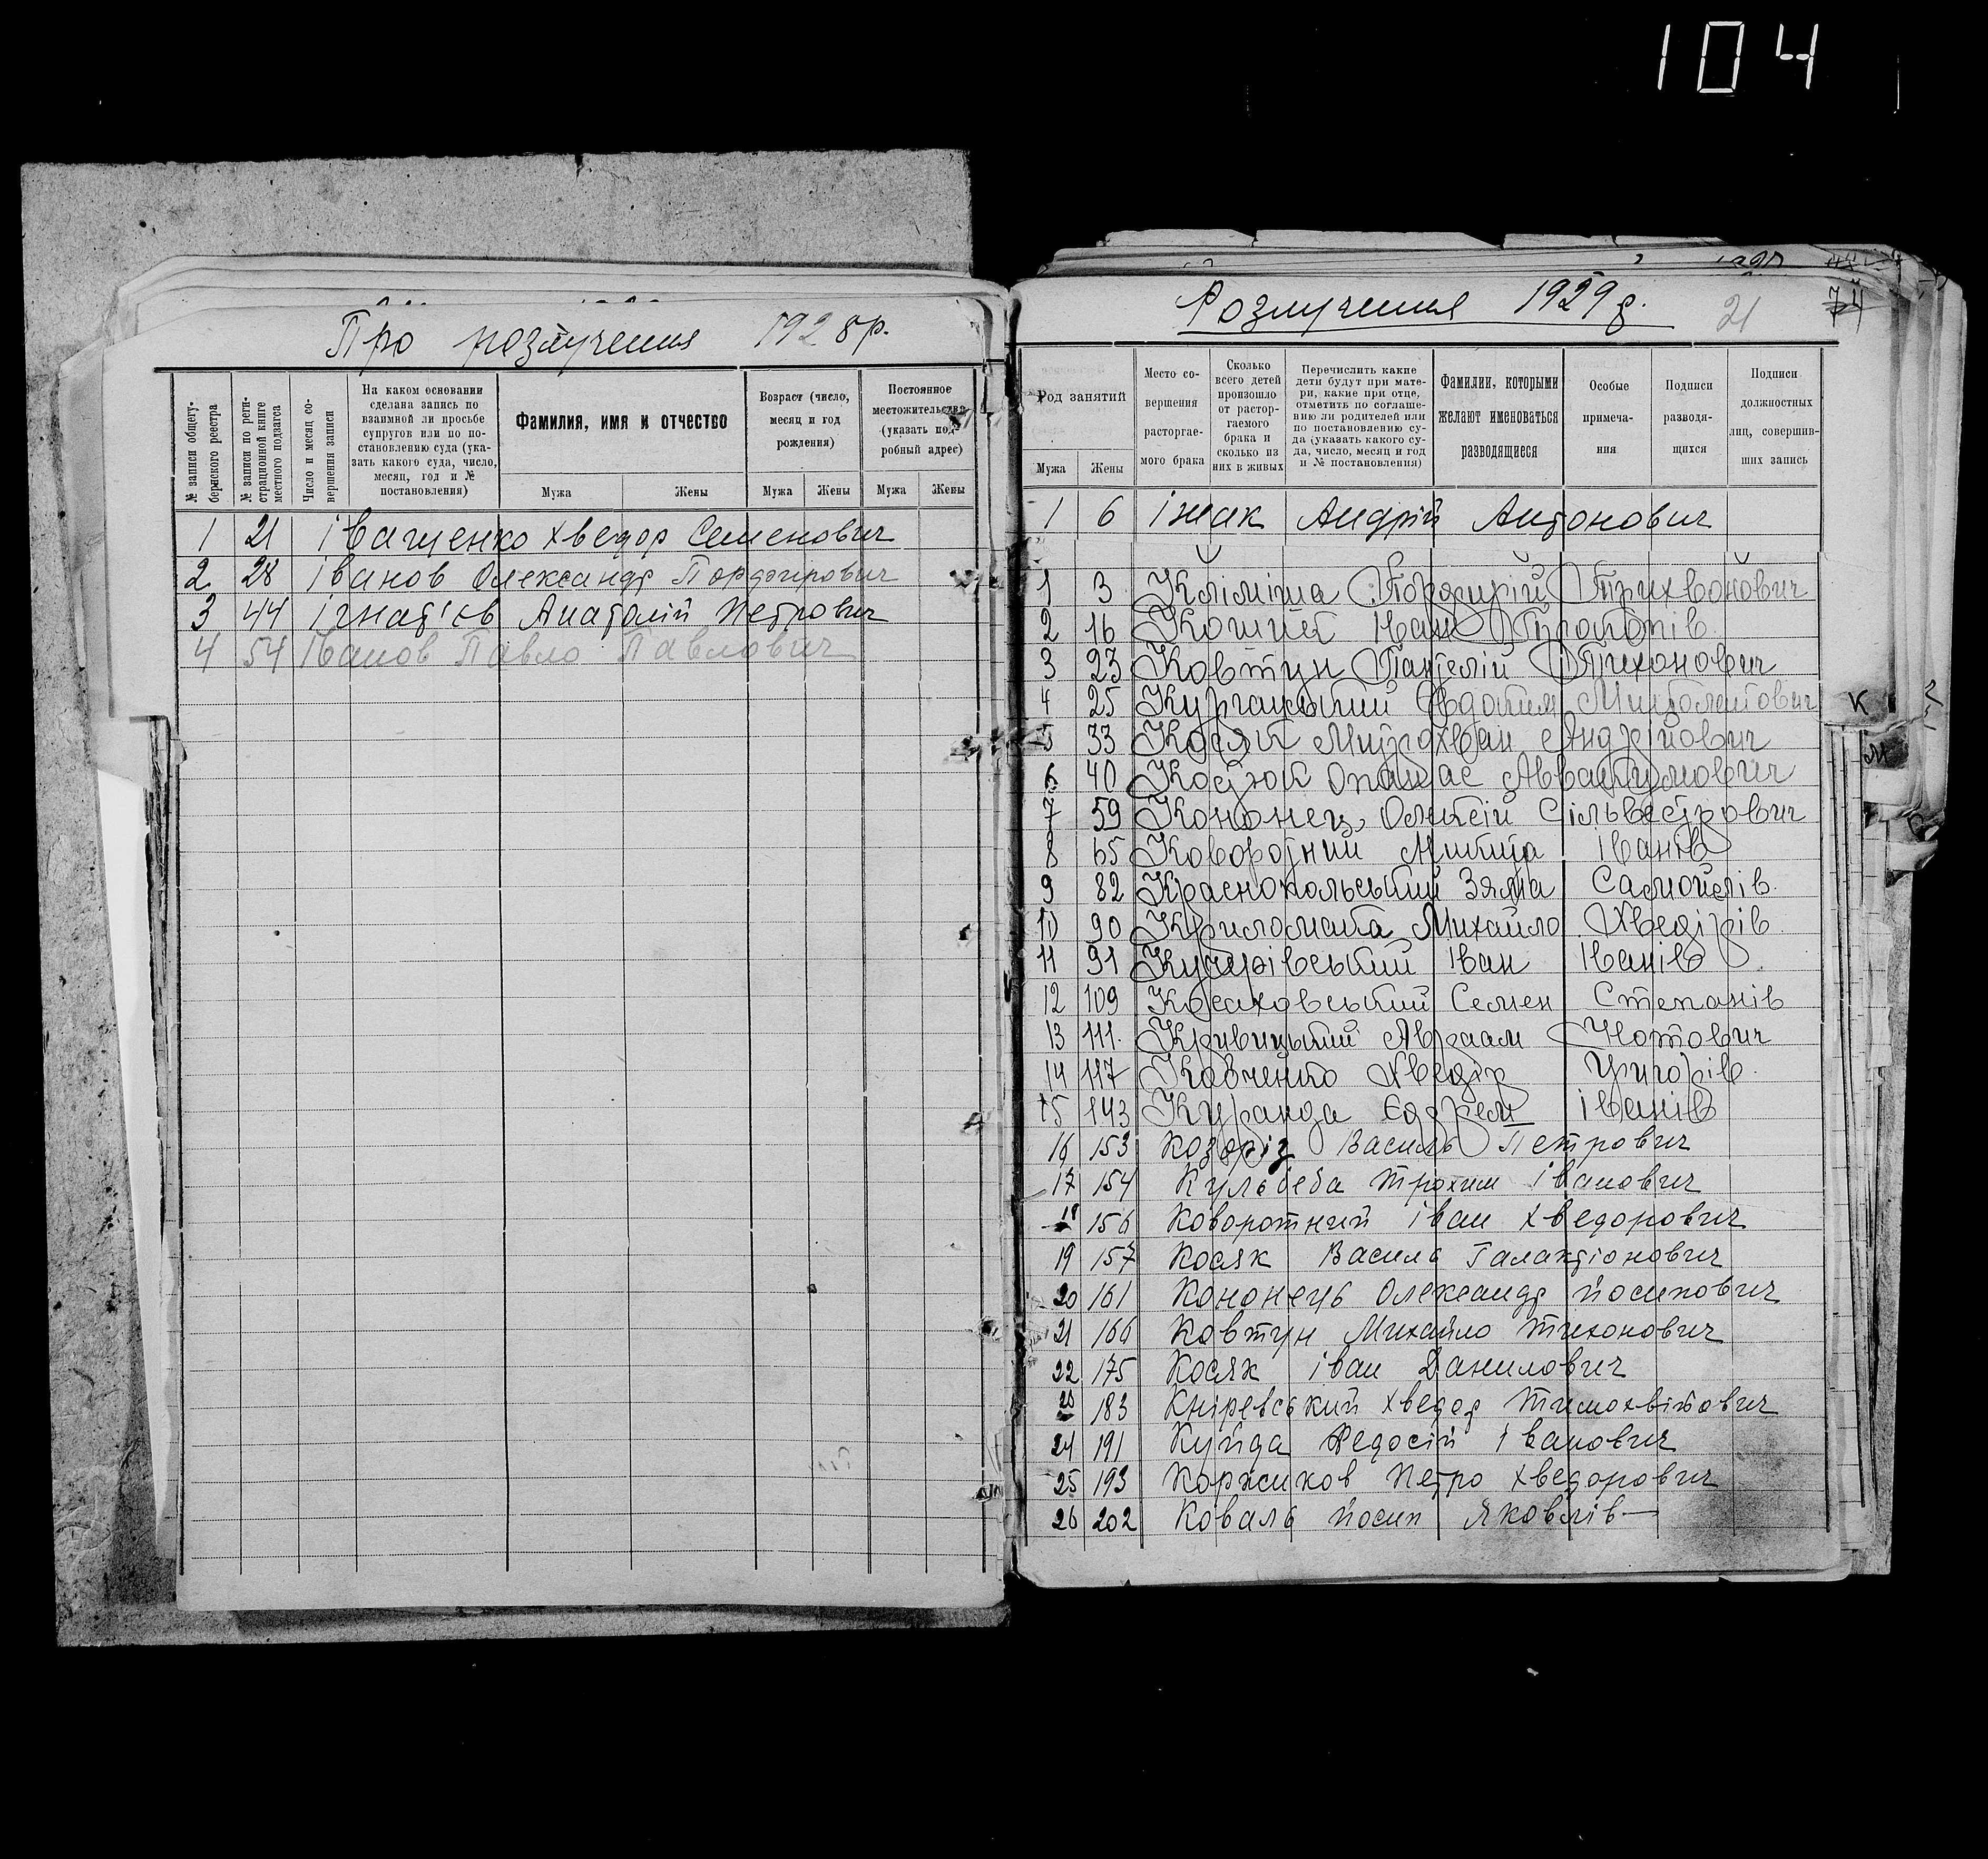 104
Про розлучення 1928 р.
№ записи общегу-
бернского реестра
№ записи по реги-
страционной книге
местного подзагса
Число и месяц со-
вершения записи
На каком основании
сделана запись по
взаимной ли просьбе
супругов или по по-
становлению суда (ука-
зать какого суда, число,
месяц, год и №
постановления)
Фамилия, имя и отчество
Мужа Жены
Возраст (число,
месяц и год
рождения)
Мужа Жены
Постоянное
местожительство
(указать под-
робный адрес)
Мужа Жены
1 21 Іващенко Хведор Семенович
2 28 Іванов Олександр Порфирович
3 44 Ігнат'єв Анатолій Петрович
4 54 Іванов Павло Павлович
Розлучення 1929 р.
21
74
Род занятий
Мужа Жены
Место со-
вершения
расторгае-
мого брака
Сколько
всего детей
произошло
от растор-
гаемого
брака и
сколько из
них в живых
Перечислить какие
дети будут при мате-
ри, какие при отце,
отметить по соглаше-
нию ли родителей или
по постановлению су-
да (указать какого су-
да, число, месяц и год
и № постановления)
Фамилии, которыми
желают именоваться
разводящиеся
Особые
примеча-
ния
Подписи
разводя-
щихся
Подписи
должностных
лиц, совершив-
ших запись
1 6 Іжак Андрій Антонович
1 3 Кліміша Порфирій Трихвонович
2 16 Іван
3 23 Ковтун Пантелій Тихонович
4 25
5 33 Косяк Митрохван Андрійович
6 40 Костюк Опанас Аввакумович
7 59 Кононец Олексій Сільвестрович
8 65 Коворотний Микита Іванів
9 82 Краснопольський Зяма Самойлів
10 90 Криломаха Михайло Хведірів
11 91 Іван Іванів
12 109 Семен Степанів
13 111. Кривицький Авраам Нотович
14 117 Кавченко Хведір Григорів
15 143 Куранда Єфрем Іванів
16 153 Козоріз Василь Петрович
17 154 Кульбеба Трохим Іванович
18 156 Коворотний Іван Хведорович
19 157 Косяк Василь Галактіонович
20 161 Кононець Олександр Йосипович
21 166 Ковтун Михайло Тихонович
22 175 Косяк Іван Данилович
23 183 Кніревський Хведор Тимохвійович
24 191 Куйда Федосій Іванович
25 193 Коржиков Петро Хведорович
26 202 Коваль Йосип Яковлів
К
М